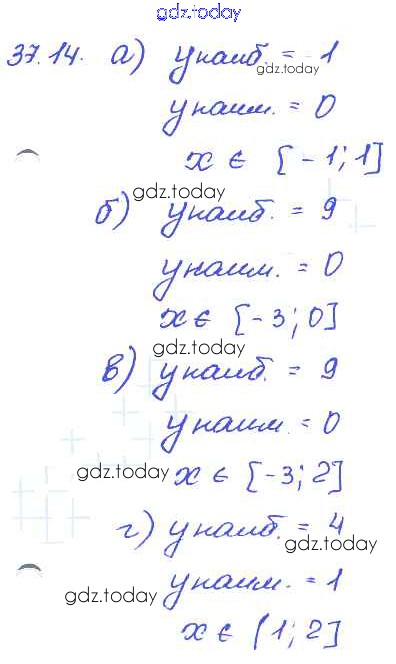 gdz.today
37.14. а) унаиб. = 1
gdz.today
унаим. = 0
x ∈ [-1; 1]
gdz.today
б) унаиб. = 9
унаим. = 0
x ∈ [-3; 0]
gdz.today
в) унаиб. = 9
унаим. = 0
gdz.today x ∈ [-3; 2]
г) унаиб. = 4
gdz.today
унаим. = 1
gdz.today
x ∈ [1; 2]